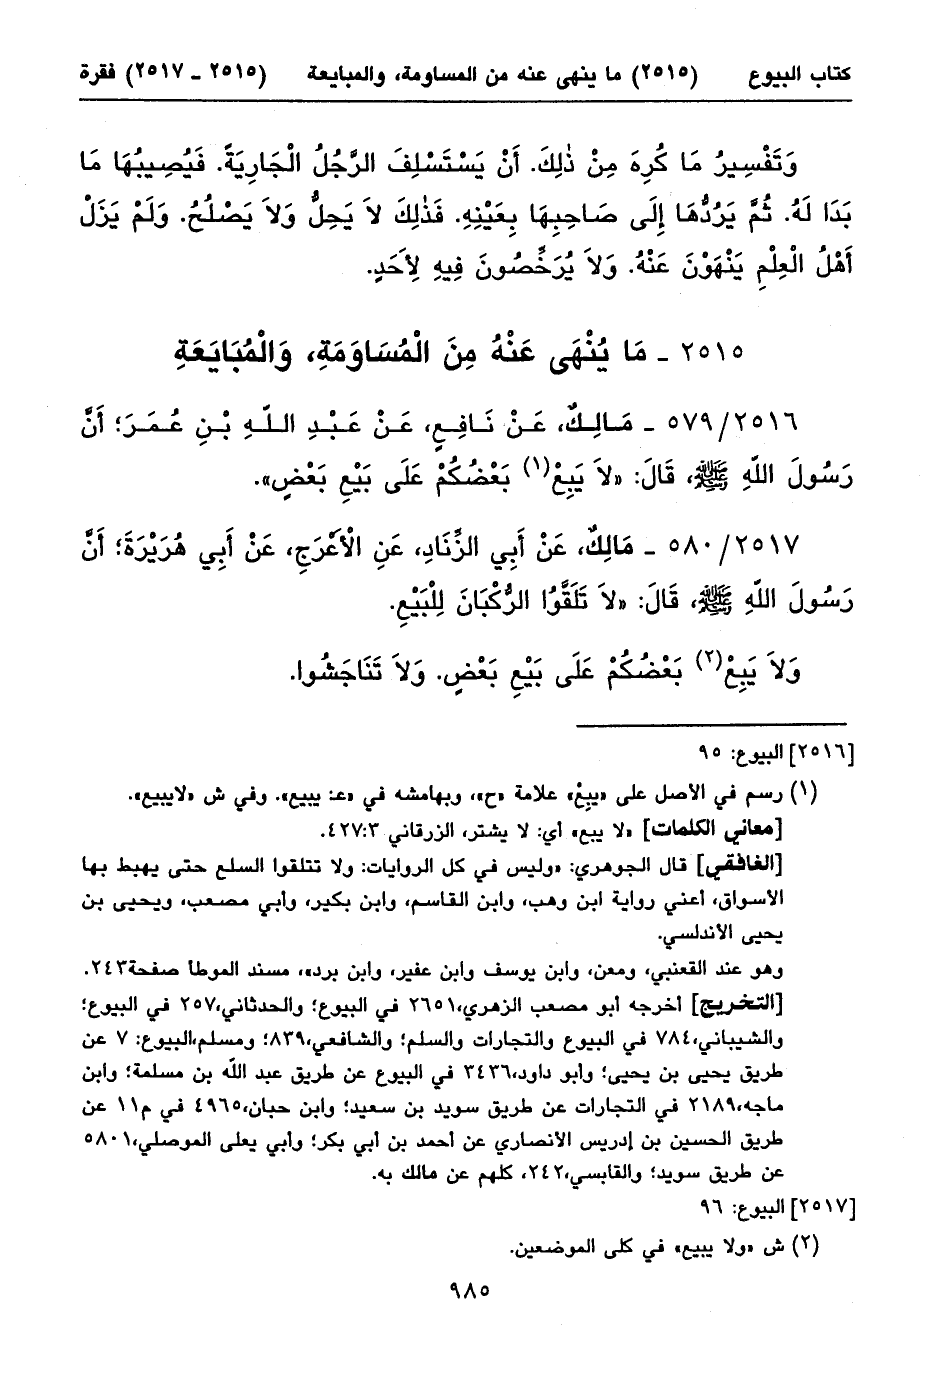 كتاب البيوع (٢٥١٥) ما ينهى عنه من المساومة، والمبايعة (٢٥١٥ - ٢٥١٧) فقرة
وَتَفْسِيرُ مَا كُرِهَ مِنْ ذٰلِكَ. أَنْ يَسْتَسْلِفَ الرَّجُلُ الْجَارِيَةَ. فَيُصِيبُهَا مَا
بَدَا لَهُ. ثُمَّ يَرُدُّهَا إِلَى صَاحِبِهَا بِعَيْنِهِ. فَذٰلِكَ لاَ يَحِلُّ وَلاَ يَصْلُحُ. وَلَمْ يَزَلْ
أَهْلُ الْعِلْمِ يَنْهَوْنَ عَنْهُ. وَلاَ يُرَخِّصُونَ فِيهِ لِأَحَدٍ.
٢٥١٥ - مَا يُنْهَى عَنْهُ مِنَ الْمُسَاوَمَةِ، وَالْمُبَايَعَةِ
٥٧٩/٢٥١٦ - مَالِكٌ، عَنْ نَافِعٍ، عَنْ عَبْدِ اللّهِ بْنِ عُمَرَ؛ أَنَّ
رَسُولَ اللّهِ ﷺ، قَالَ: «لاَ يَبِعْ(١) بَعْضُكُمْ عَلَى بَيْعِ بَعْضٍ».
٥٨٠/٢٥١٧ - مَالِكٌ، عَنْ أَبِي الزِّنَادِ، عَنِ الْأَعْرَجِ، عَنْ أَبِي هُرَيْرَةَ؛ أَنَّ
رَسُولَ اللّهِ ﷺ، قَالَ: «لاَ تَلَقَّوُا الرُّكْبَانَ لِلْبَيْعِ.
وَلاَ يَبِعْ(٢) بَعْضُكُمْ عَلَى بَيْعِ بَعْضٍ. وَلاَ تَنَاجَشُوا.
[٢٥١٦] البيوع: ٩٥
(١) رسم في الأصل على «يبعْ» علامة «ح»، وبهامشه في «عـ: يبيع». وفي ش «لايبيع».
[معاني الكلمات] «لا يبع» أي: لا يشتر، الزرقاني ٤٢٧:٣.
[الغافقي] قال الجوهري: «وليس في كل الروايات: ولا تتلقوا السلع حتى يهبط بها
الأسواق، أعني رواية ابن وهب، وابن القاسم، وابن بكير، وأبي مصعب، ويحيى بن
يحيى الأندلسي.
وهو عند القعنبي، ومعن، وابن يوسف وابن عفير، وابن برد»، مسند الموطأ صفحة٢٤٣.
[التخريج] أخرجه أبو مصعب الزهري،٢٦٥١ في البيوع؛ والحدثاني،٢٥٧ في البيوع؛
والشيباني،٧٨٤ في البيوع والتجارات والسلم؛ والشافعي،٨٣٩؛ ومسلم،البيوع: ٧ عن
طريق يحيى بن يحيى؛ وأبو داود،٣٤٣٦ في البيوع عن طريق عبد الله بن مسلمة؛ وابن
ماجه،٢١٨٩ في التجارات عن طريق سويد بن سعيد؛ وابن حبان،٤٩٦٥ في م١١ عن
طريق الحسين بن إدريس الأنصاري عن أحمد بن أبي بكر؛ وأبي يعلى الموصلي،٥٨٠١
عن طريق سويد؛ والقابسي،٢٤٢، كلهم عن مالك به.
[٢٥١٧] البيوع: ٩٦
(٢) ش «ولا يبيع» في كلى الموضعين.
٩٨٥